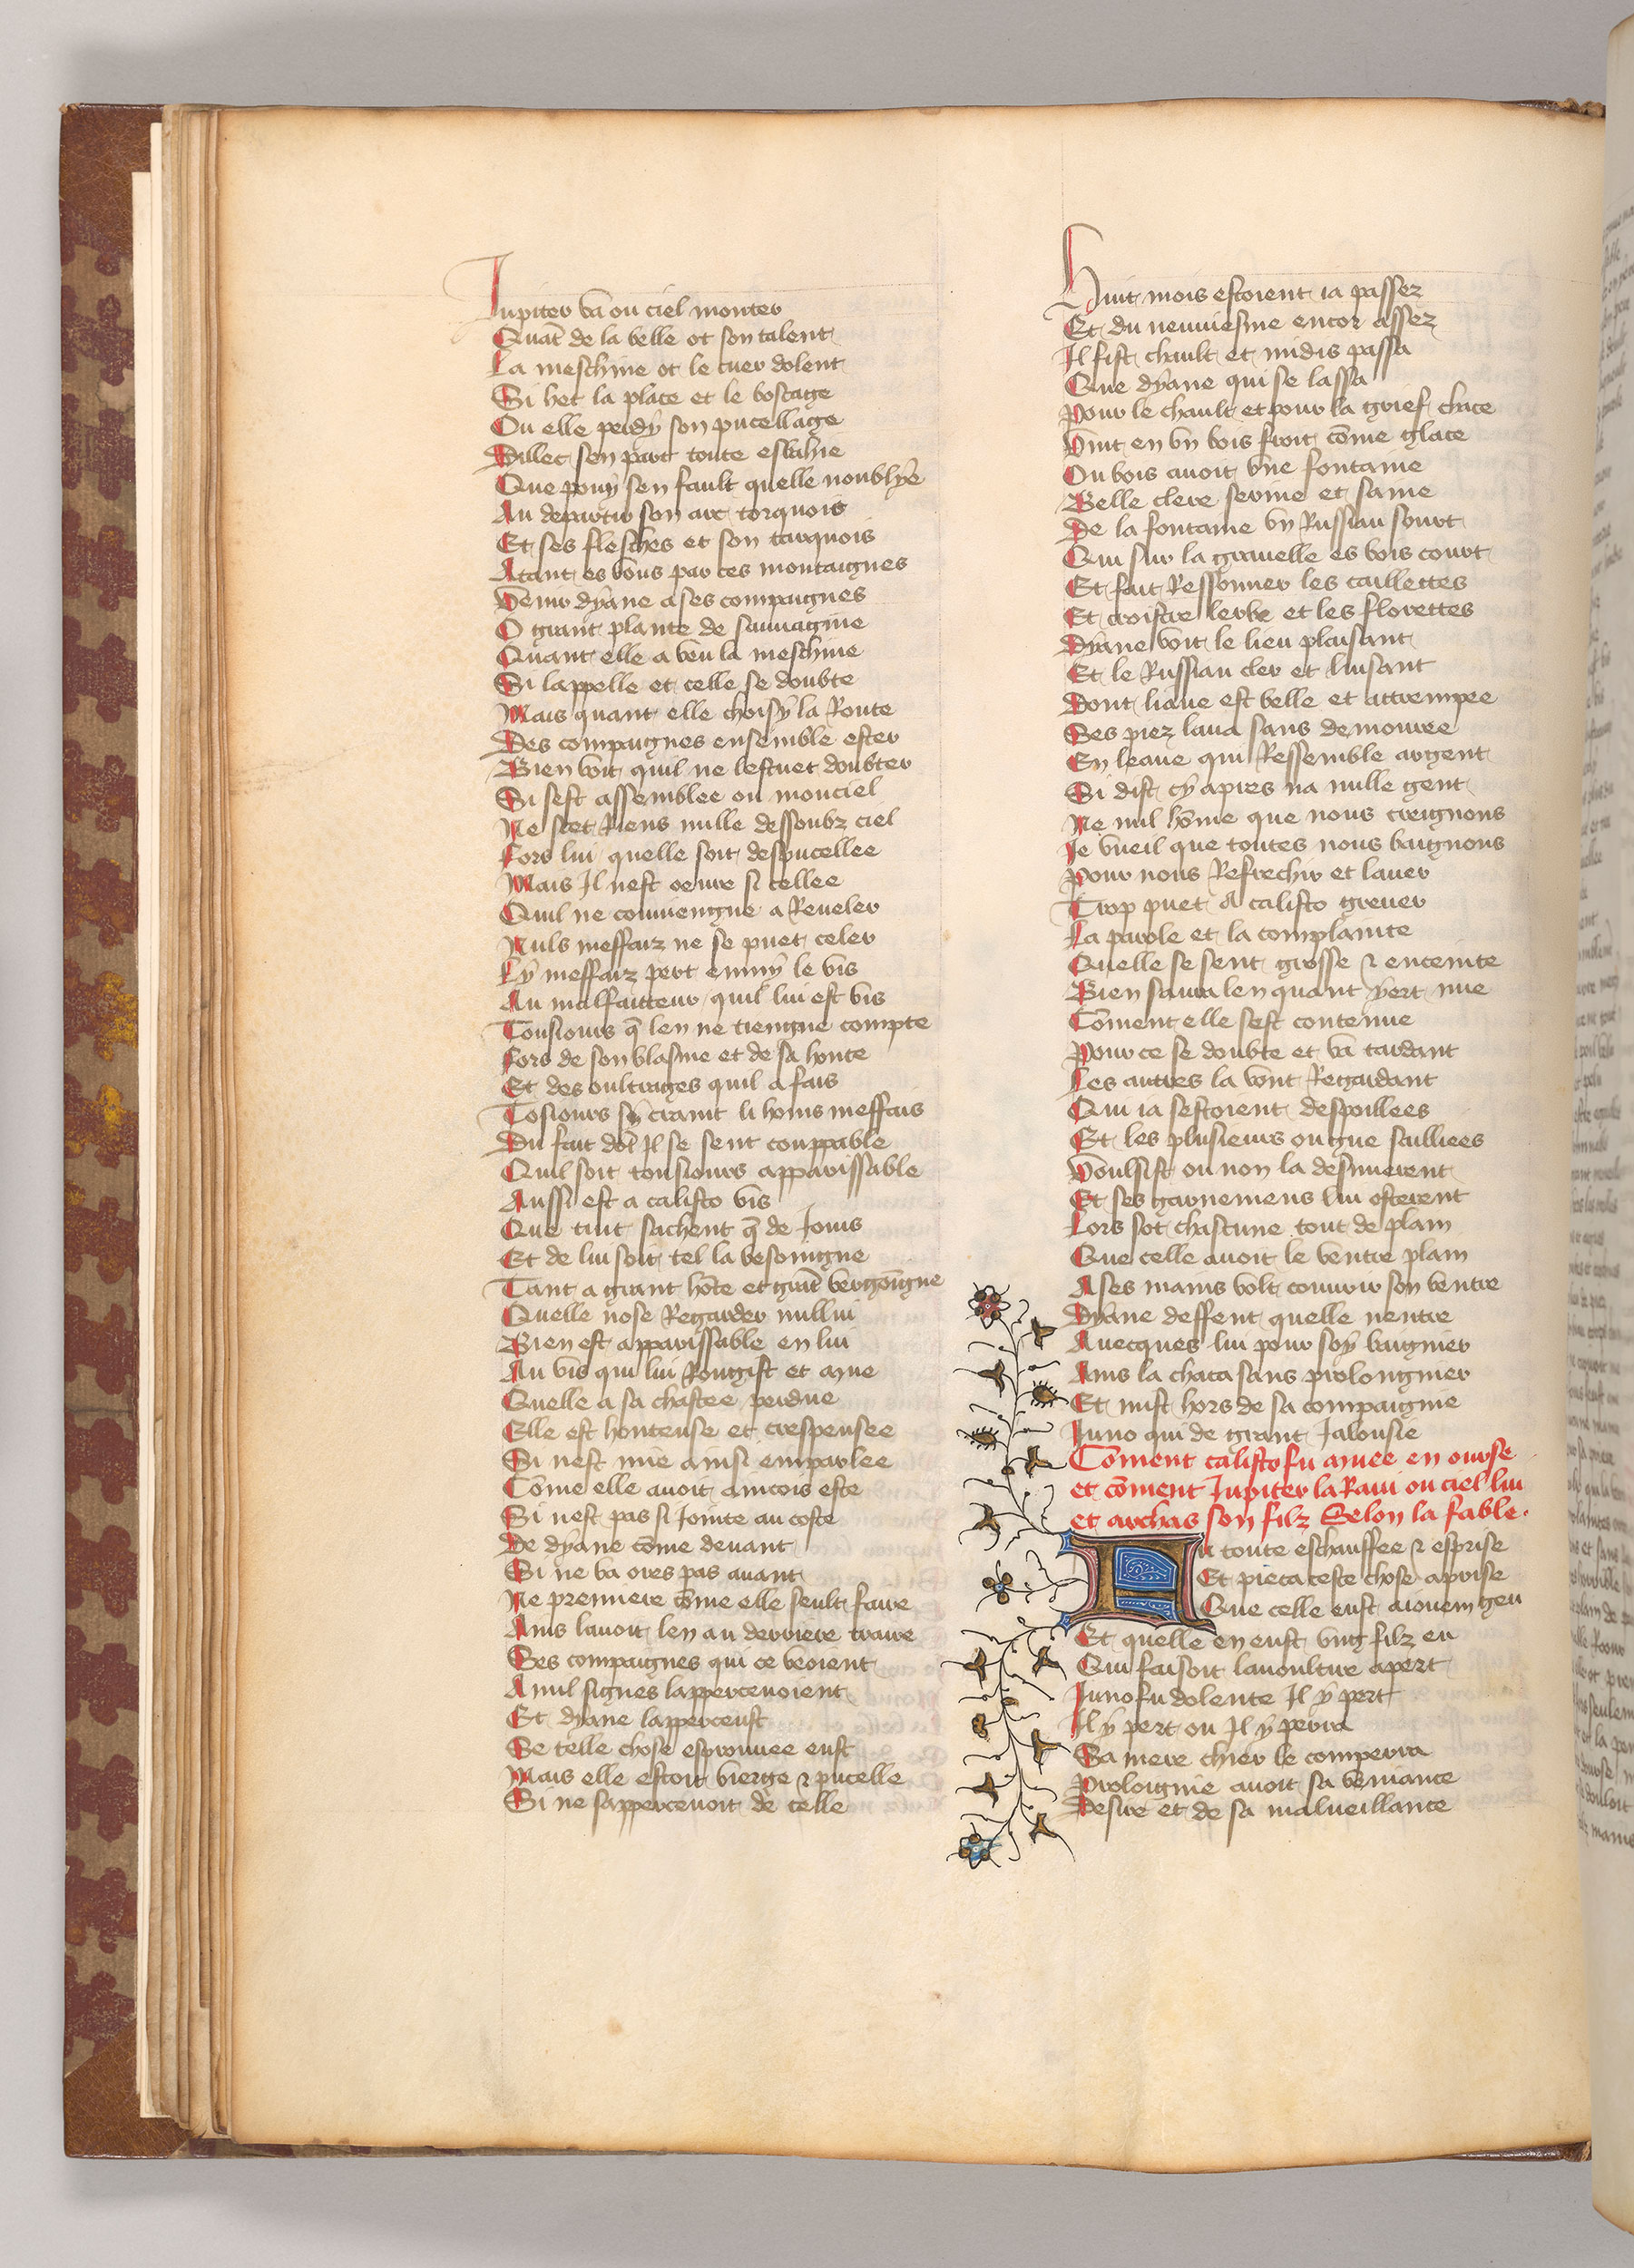 Iupiter va ou ciel monter
Quāt de la belle ot son talent
La meschine ot le cuer dolent
Si het la place et le boscage
Ou elle perdy son pucellage
Dillec sen part toute esbahie
Que pou sen fault quelle noublye
Au departir son arc torquois
Et ses flesches et son carquois
Atant es vous par ces montaignes
Venir dyane a ses compaignes
O grant plante de sauuagine
Quant elle a veu la meschine
Si lappelle et celle se doubte
Mais quant elle choisy la Route
Des compaignes ensemble ester
Bien voit quil ne lestuet doubter
Si sest assemblee ou monciel
Ne scet Riens nulle dessoubz ciel
Fors lui quelle soit despucellee
Mais Il nest oeuure si cellee
Quil ne conuiengne a Reueler
Nuls meffaiz ne se puet celer
Ly meffaiz pert enmy le vis
Au malfaitteur quil lui est vis
Tousiours q̄ len ne tiengne compte
Fors de son blasme et de sa honte
Et des oultrages quil a fais
Tosiours se craint li homs meffais
Du fait dōt Il se sent couppable
Quil soit tousiours apparissable
Aussi est a calisto vis
Que tuit sachent q̄ de Iouis
Et de lui soit tel la besoingne
Tant a grant hōte et grāt vergōigne
Quelle nose Regarder nullui
Bien est apparissable en lui
Au vis qui lui Rougist et mue
Quelle a sa chastee perdue
Elle est honteuse et trespensee
Si nest mie ainsi emparlee
Cōme elle auoit aincois este
Si nest pas si Iointe au coste
De dyane cōme deuant
Si ne va ores pas auant
Ne premiere cōme elle seult faire
Ains lauoit len au derriere traire
Ses compaignes qui ce veoient
A mil signes lapperceuoient
Et dyane lapperceust
Se telle chose esprouuee eust
Mais elle estoit vierge ⁊ pucelle
Si ne sapperceuoit de celle
Huit mois estoient ia passez
Et du neuuiesme encor assez
Il fist chault et midis passa
Que dyane qui se lassa
Pour le chault et pour la grief chace
Vint en vn bois froit cōme glace
Ou bois auoit vne fontaine
Belle clere serine et saine
De la fontaine vn Russiau sourt
Qui sur la grauelle es bois court
Et fait Ressonner les caillettes
Et croistre lerbe et les florettes
Dyane voit le lieu plaisant
Et le Russiau cler et luisant
Dont liaue est belle et attrempee
Ses piez laua sans demouree
En leaue qui Ressemble argent
Si dist cy apres na nulle gent
Ne nul hōme que nous creignons
Ie vueil que toutes nous baignons
Pour nous Refrechir et lauer
Trop puet a calisto greuer
La parole et la complainte
Quelle se sent grosse ⁊ enceinte
Bien saura len quant yert nue
Cōment elle sest contenue
Pour ce se doubte et va tardant
Les autres la vont Regardant
Qui ia sestoient despoillees
Et les plusieurs ou gue saillees
Voulsist ou non la desnuerent
Et ses garnemens lui osterent
Lors sot chascune tout de plain
Que celle auoit le ventre plain
A ses mains volt couurir son ventre
Dyane deffent quelle nentre
Auecques lui pour soy baignier
Ains la chaca sans prolongnier
Et mist hors de sa compaignie
Iuno qui de grant Ialousie
Cōment calisto fu muee en ourse
et cōment Iupiter la Raui ou ciel lui
et archas son filz Selon la fable.
Fu toute eschauffee ⁊ esprise
Et pieca ceste chose aprise
Que celle eust a iouem geu
Et quelle en eust vng filz eu
Qui faisoit lauoultire apert
Iuno fu dolente Il y pert
Il y pert ou Il y perra
Sa mere chier le comperra
Proloignie auoit sa veniance
Desire et de sa malueillance